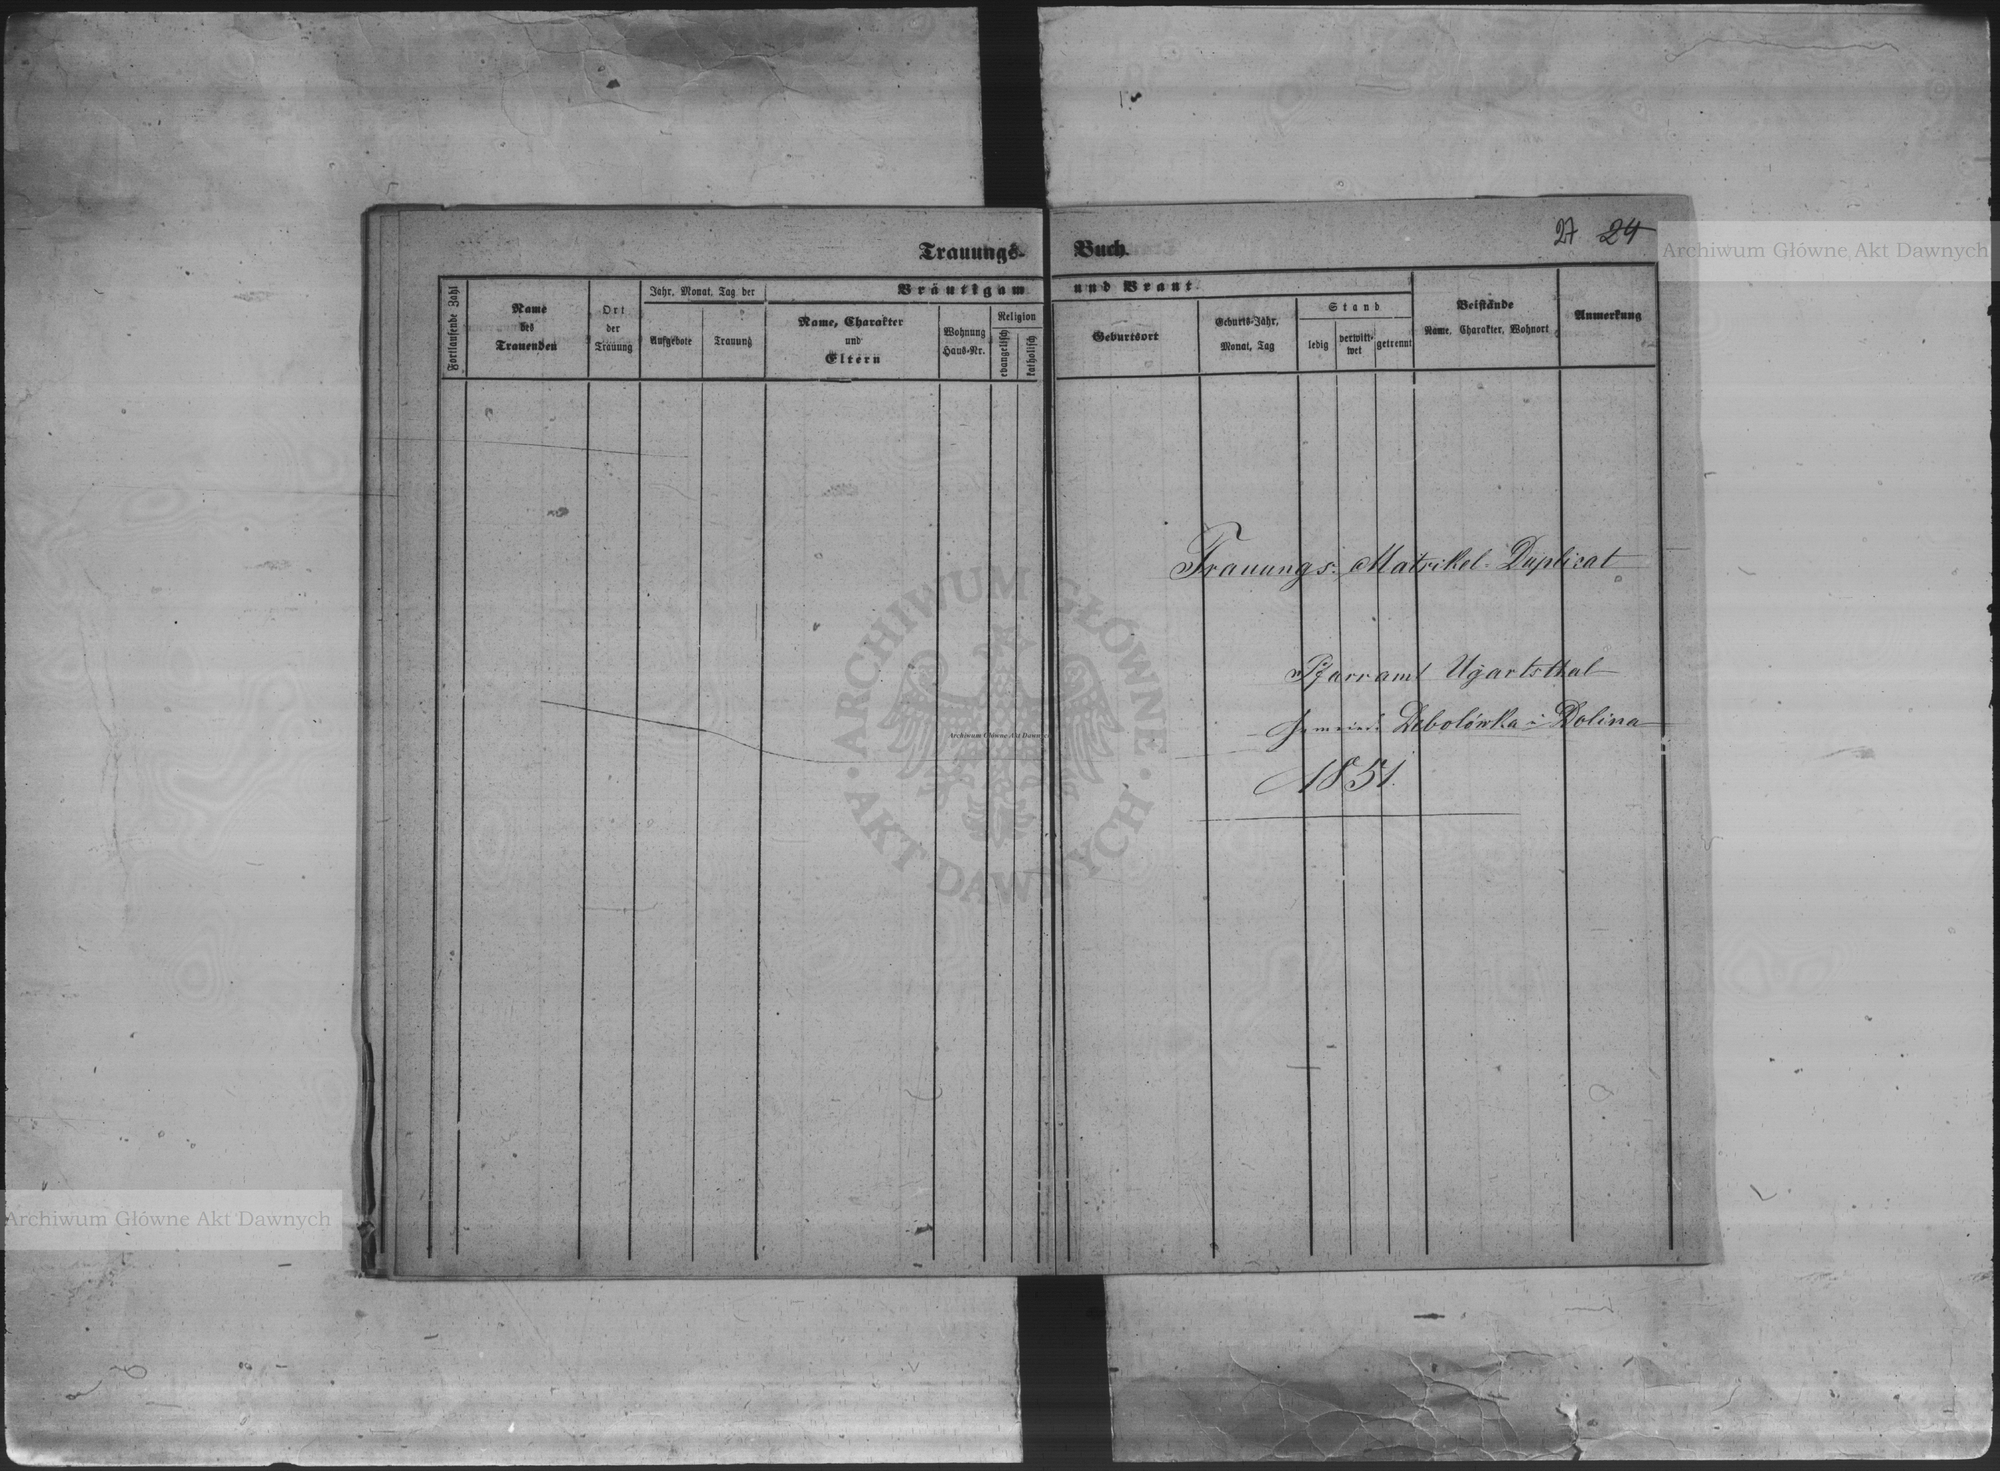 27 24
Archiwum Główne Akt Dawnych
Trauungs- Buch
Fortlaufende Zahl
Name
des
Trauenden
Ort
der
Trauung
Jahr, Monat, Tag der
Aufgebote
Trauung
Bräutigam und Braut
Name, Charakter
und
Eltern
Wohnung
Haus-Nr.
Religion
evangelisch
katholisch
Geburtsort
Geburts-Jahr,
Monat, Tag
Stand
ledig
verwitt-
wet
getrennt
Beistände
Name, Charakter, Wohnort
Anmerkung
Trauungs-Matrikel-Duplicat
Pfarramt Ugartsthal
Debolówka Dolina
1851.
ARCHIWUM GŁÓWNE
AKT DAWNYCH
Archiwum Główne Akt Dawnych
Archiwum Główne Akt Dawnych